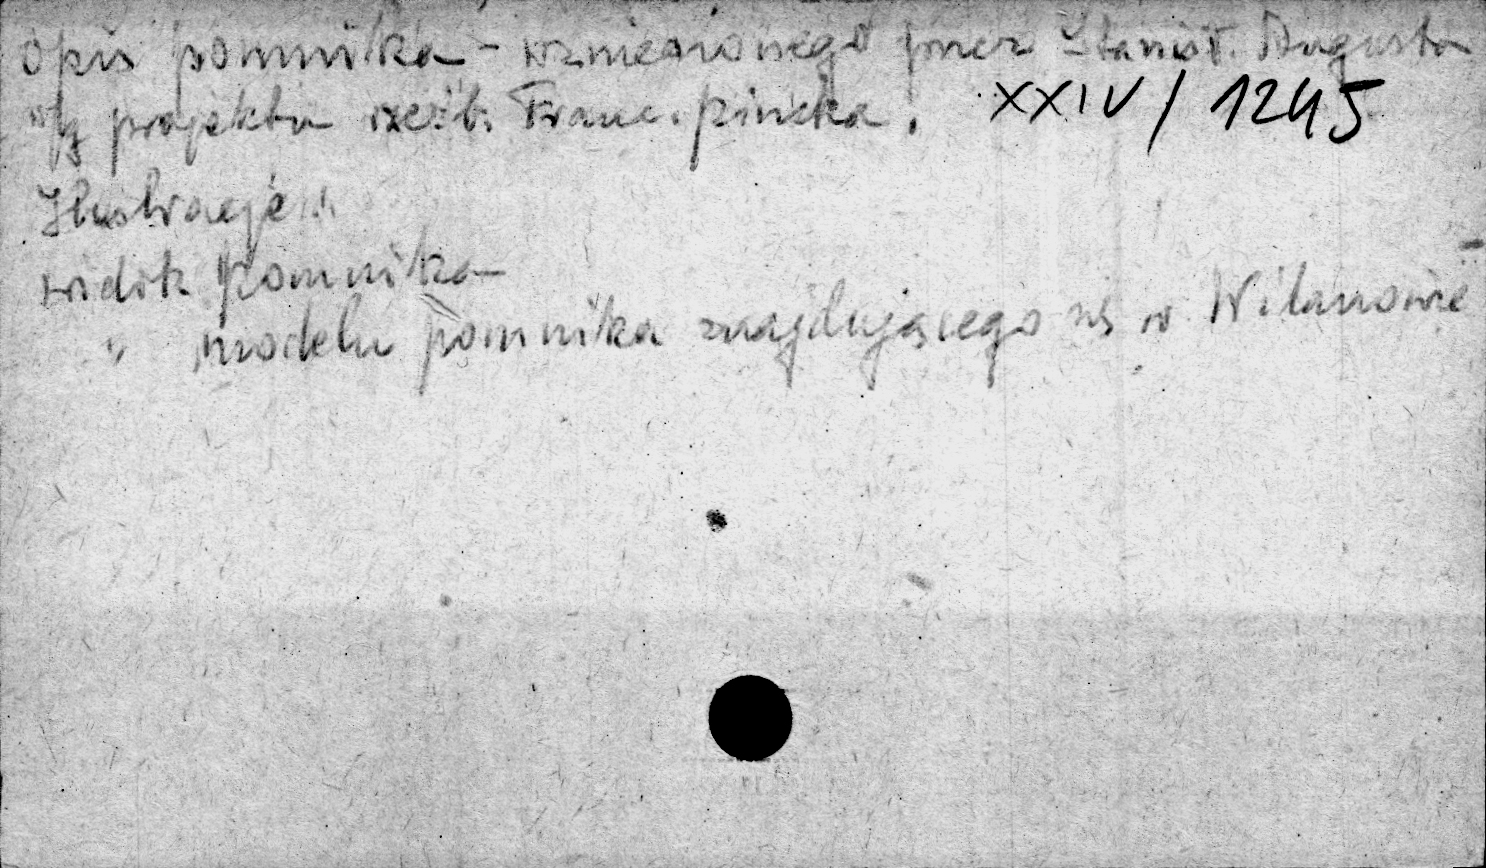 opis pomnika – wzniesionego przez Stanisł. Augusta
wg projektu rzeźb. Franc. Pincka. XXIV/1245
Ilustracje:
widok pomnika –
" modelu pomnika znajdującego się w Wilanowie –